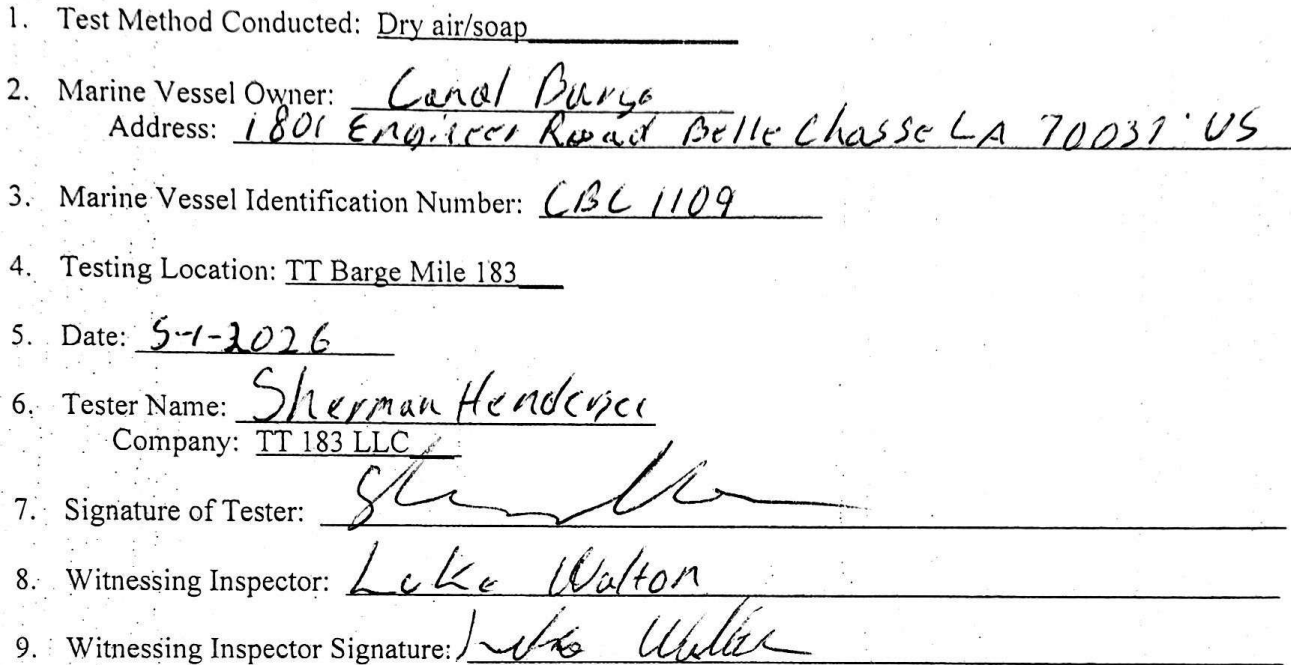 1. Test Method Conducted: Dry air/soap
2. Marine Vessel Owner: Canal Barge
Address: 1801 Engineer Road Belle Chasse LA 70037 US
3. Marine Vessel Identification Number: CBC 1109
4. Testing Location: TT Barge Mile 183
5. Date: 5-1-2026
6. Tester Name: Sherman Henderson
Company: TT 183 LLC
7. Signature of Tester:
8. Witnessing Inspector: Luke Walton
9. Witnessing Inspector Signature: Luke Walton